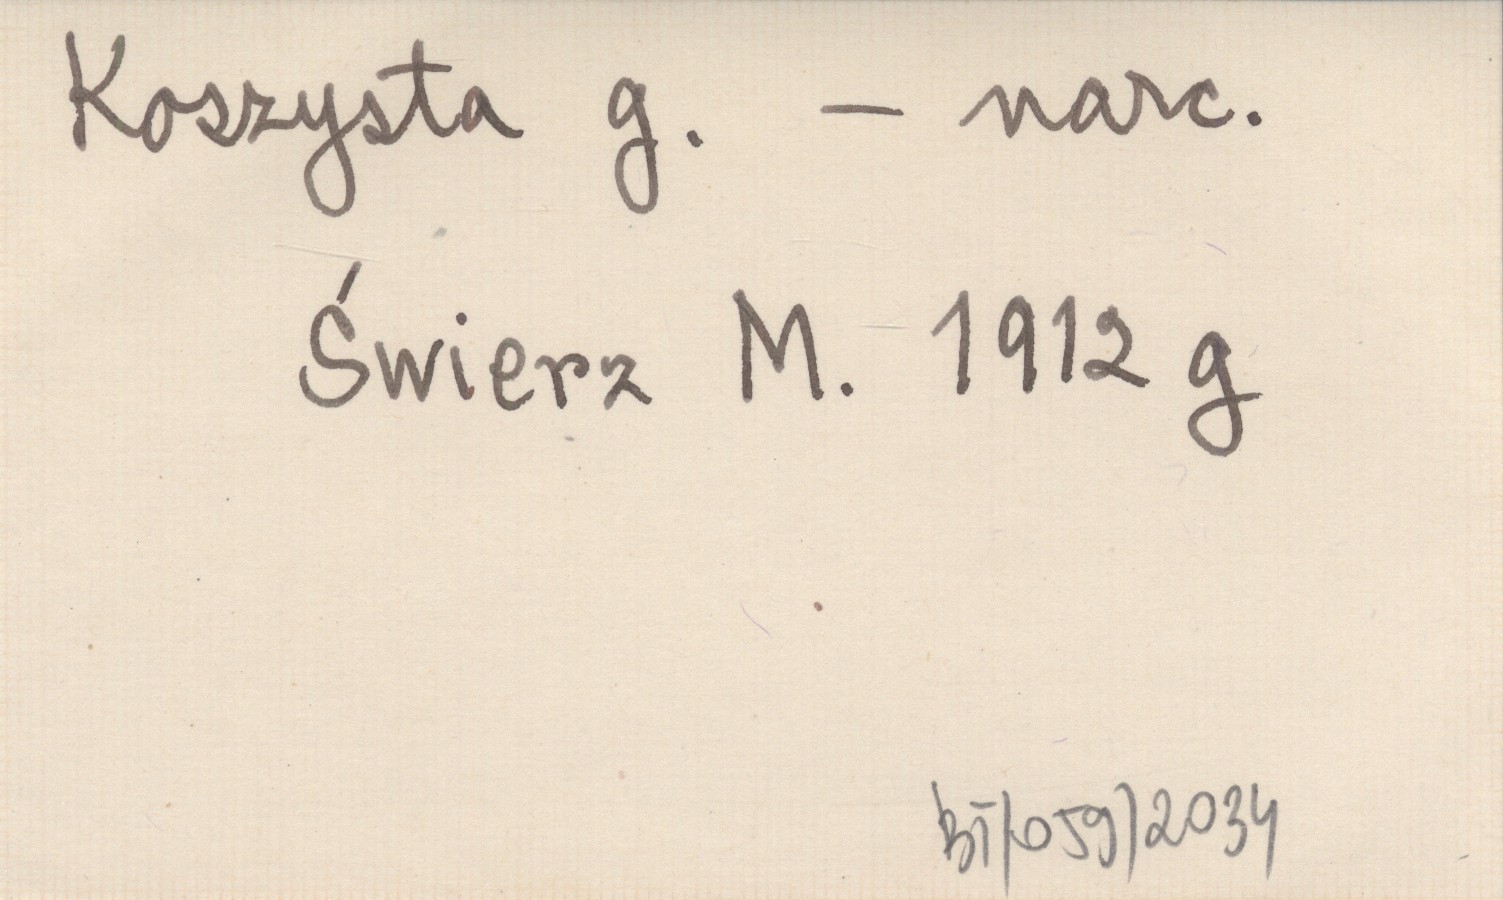 Koszysta g. – narc.
Świerz M. 1912 g
BT/059/2034